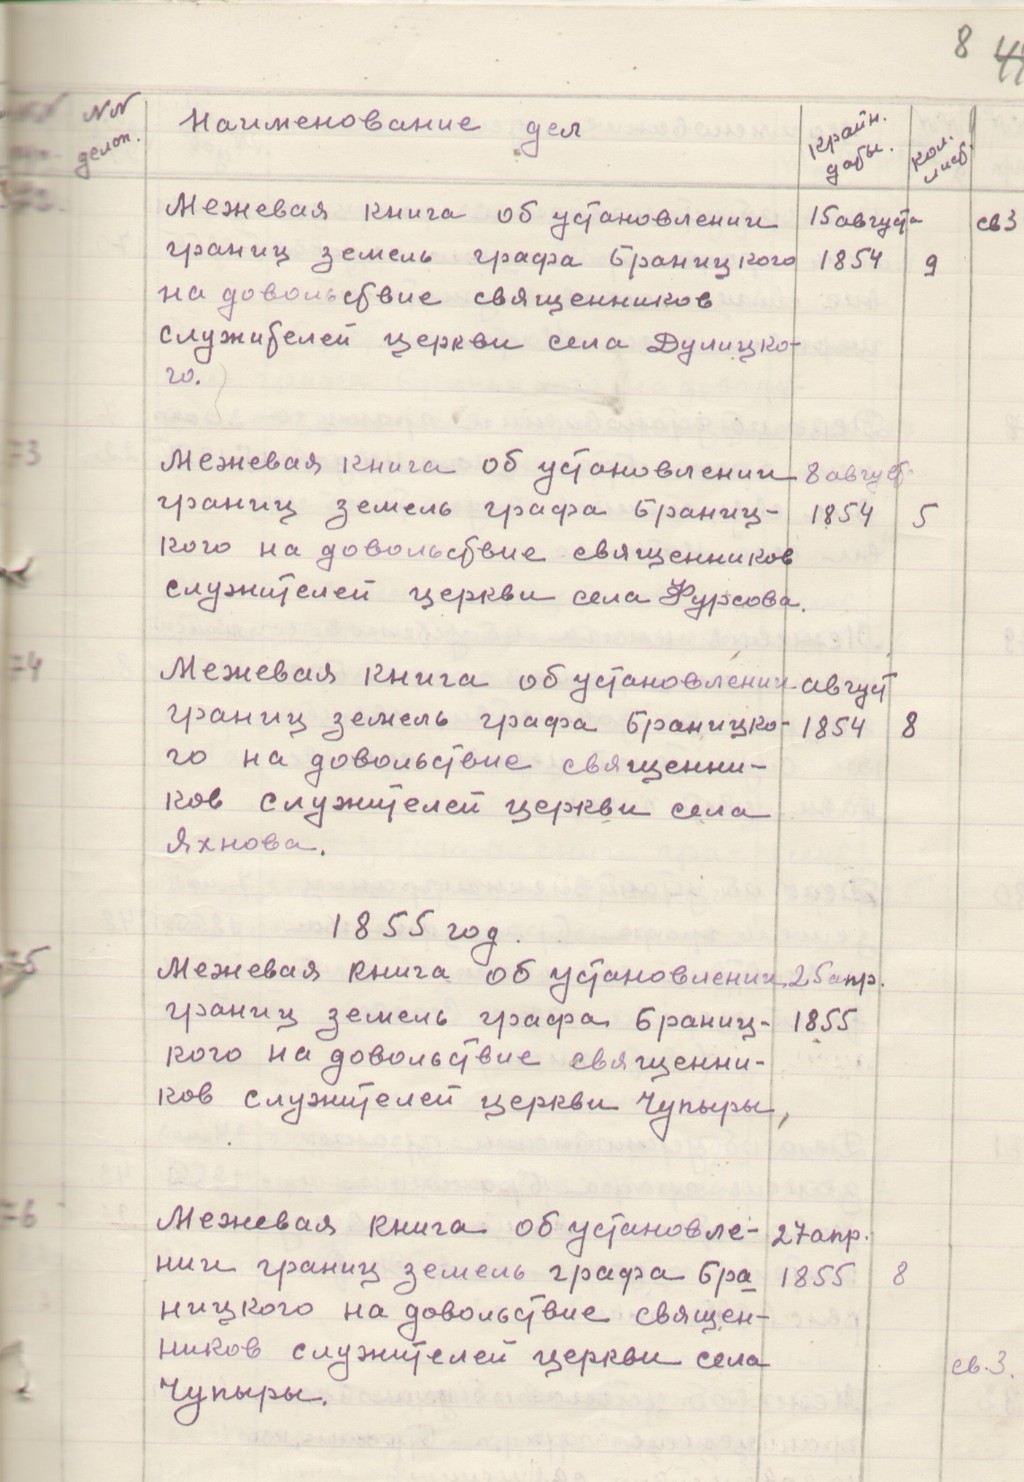 8
NN делоп. Наименование дел Крайн. даты. Кол. лист.
Межевая книга об установлении 15 августа св 3
границ земель графа Браницкого 1854 9
на довольствие священников
служителей церкви села Дулицко-
го.
73 Межевая книга об установлении 8 август.
границ земель графа Браниц- 1854 5
кого на довольствие священников
служителей церкви села Фурсова.
74 Межевая книга об установлении август
границ земель графа Браницко- 1854 8
го на довольствие священни-
ков служителей церкви села
Яхнова.
1855 год.
75 Межевая книга об установлении 25 апр.
границ земель графа Браниц- 1855
кого на довольствие священни-
ков служителей церкви Чупыры,
76 Межевая книга об установле- 27 апр.
нии границ земель графа Бра 1855 8
ницкого на довольствие священ-
ников служителей церкви села св. 3.
Чупыры.